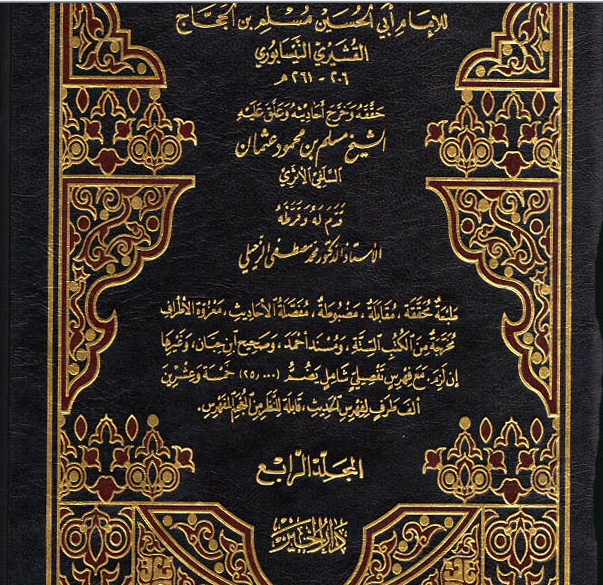 للإمام أبي الحسين مسلم بن الحجاج
القشيري النيسابوري
٢٠٦ - ٢٦١ هـ
حققه وخرج أحاديثه وعلق عليه
الشيخ مسلم بن محمود عثمان
السلفي الأثري
قدم له وقرظه
الأستاذ الدكتور محمد مصطفى الزحيلي
طبعة محققة ، مقابلة ، مضبوطة ، مفصلة الأحاديث ، معزوة الأطراف
مخرجة من الكتب الستة ، ومسند أحمد ، وصحيح ابن حبان ، وغيرها
إن لزم ، مع فهرس تفصيلي شامل يضم (٢٥,٠٠٠) خمسة وعشرين
ألف طرف لفهرس الحديث ، قابلة للنظر من المعجم المفهرس.
المجلد الرابع
دار الخير